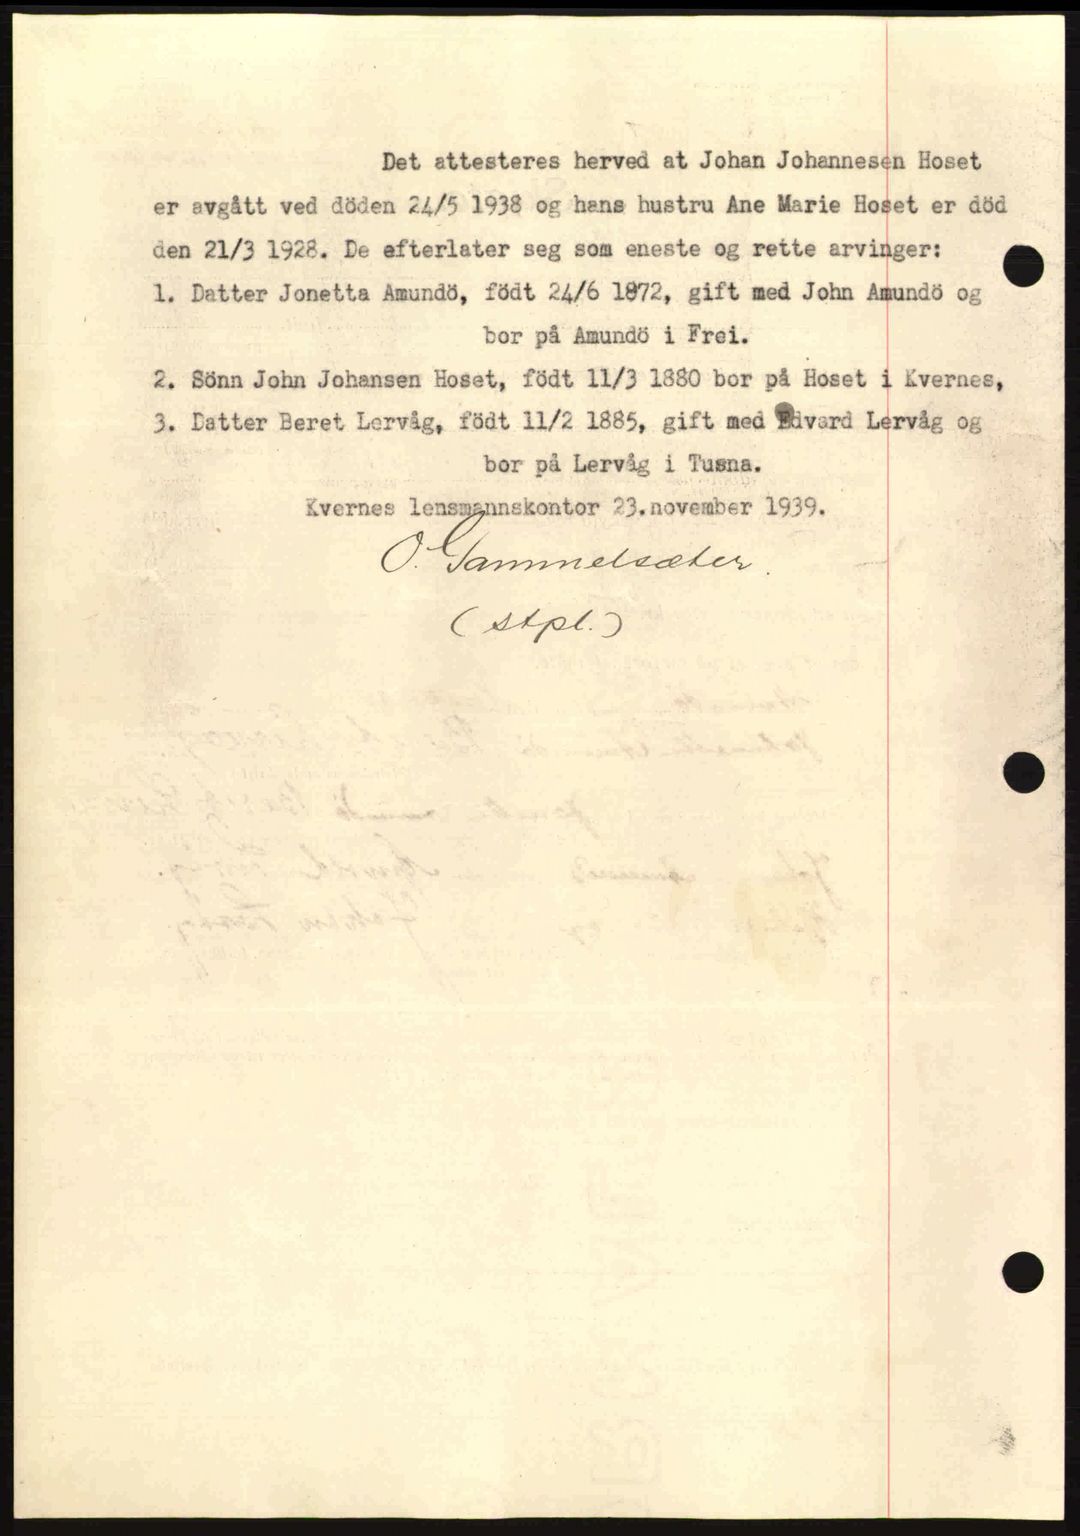 Det attesteres herved at Johan Johannesen Hoset
er avgått ved döden 24/5 1938 og hans hustru Ane Marie Hoset er död
den 21/3 1928. De efterlater seg som eneste og rette arvinger:
1. Datter Jonetta Amundö, födt 24/6 1872, gift med John Amundö og
bor på Amundö i Frei.
2. Sönn John Johansen Hoset, födt 11/3 1880 bor på Hoset i Kvernes,
3. Datter Beret Lervåg, födt 11/2 1885, gift med Edvard Lervåg og
bor på Lervåg i Tusna.
Kvernes lensmannskontor 23.november 1939.
O. Gammelsæter.
(stpl.)